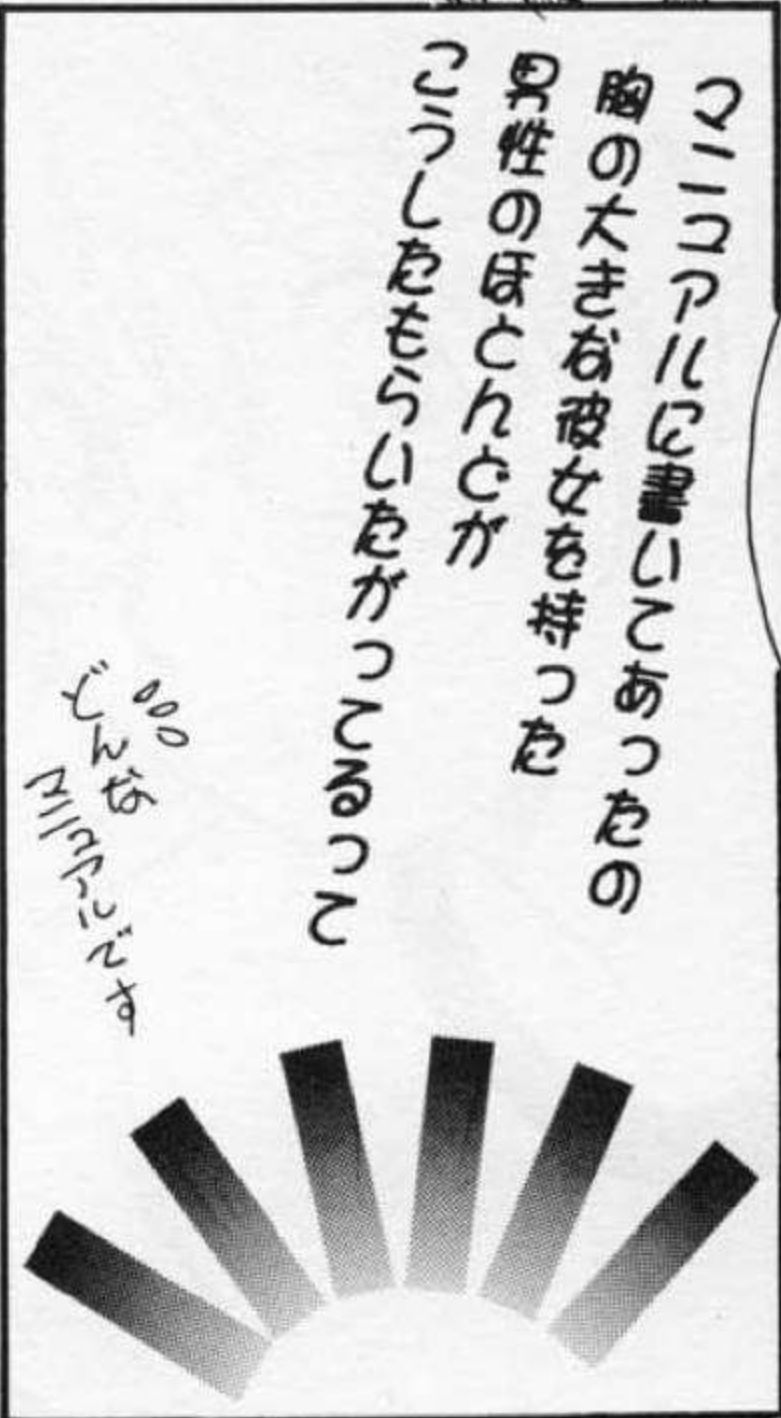 マニュアルに書いてあったの
胸の大きな彼女を持った
男性のほとんどが
こうしたもらいたがってるって
どんな
マニュアルです